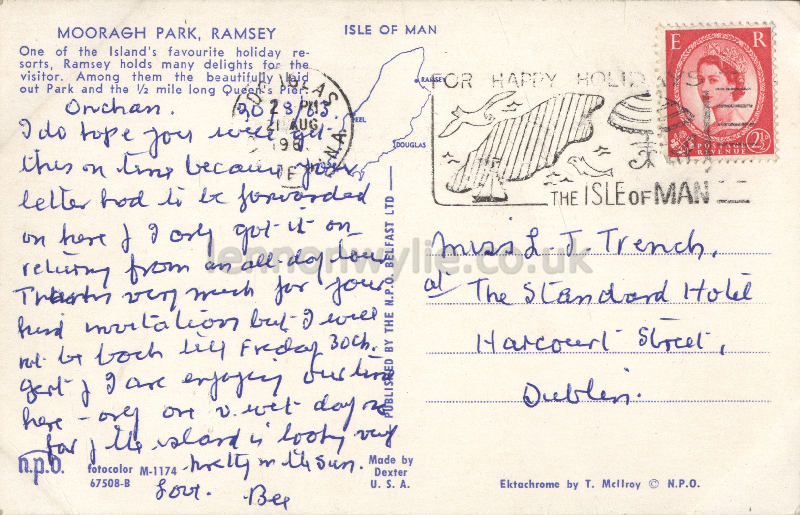 MOORAGH PARK, RAMSEY
One of the Island's favourite holiday re-
sorts, Ramsey holds many delights for the
visitor. Among them the beautifully laid
out Park and the ½ mile long Queen's Pier.
ISLE OF MAN
RAMSEY
PEEL
DOUGLAS
DOUGLAS
2 PM
21 AUG
196
FOR HAPPY HOLIDAYS
THE ISLE OF MAN
E R
POSTAGE
REVENUE
2½D
Onchan. 20/8/63.
I do hope you will get
this on time because your
letter had to be forwarded
on here & I only got it on
returning from an all-day tour
Thanks very much for your
kind invitation but I will
not be back till Friday 30th.
Gert & I are enjoying our time
here - only one v. wet day so
far & the island is looking very
pretty in the sun.
Love. Bee
Miss L. J. Trench,
at The Standard Hotel
Harcourt Street,
Dublin.
PUBLISHED BY THE N.P.O. BELFAST LTD
n.p.o. fotocolor M-1174
67508-B
Made by
Dexter
U. S. A.
Ektachrome by T. McIlroy © N.P.O.
lennonwylie.co.uk